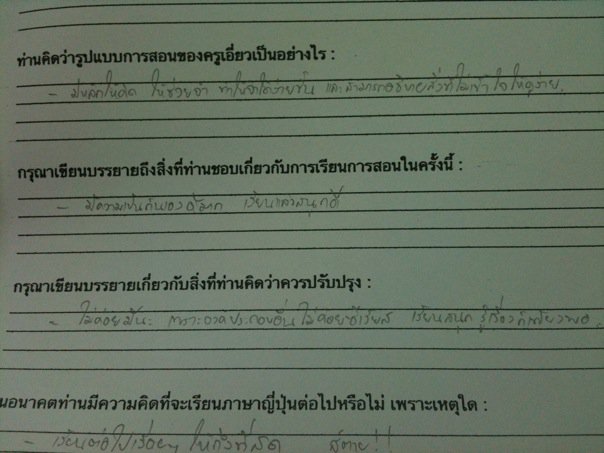 ท่านคิดว่ารูปแบบการสอนของครูเอี่ยวเป็นอย่างไร :
- มีหลักให้คิด ให้ช่วยจำ ทำให้จำได้ง่ายขึ้น และสามารถอธิบายสิ่งที่ไม่เข้าใจให้ดูง่าย.
กรุณาเขียนบรรยายถึงสิ่งที่ท่านชอบเกี่ยวกับการเรียนการสอนในครั้งนี้ :
- มีความเป็นกันเองดีมาก เรียนแล้วสนุกดี
กรุณาเขียนบรรยายเกี่ยวกับสิ่งที่ท่านคิดว่าควรปรับปรุง :
- ไม่ค่อยมีนะ เพราะองค์ประกอบอื่นไม่ค่อยซีเรียส เรียนสนุก รู้เรื่องก็เพียงพอ.
นอนาคตท่านมีความคิดที่จะเรียนภาษาญี่ปุ่นต่อไปหรือไม่ เพราะเหตุใด :
- เรียนต่อไปเรื่อยๆ ให้ถึงที่สุด สู้ตาย!!